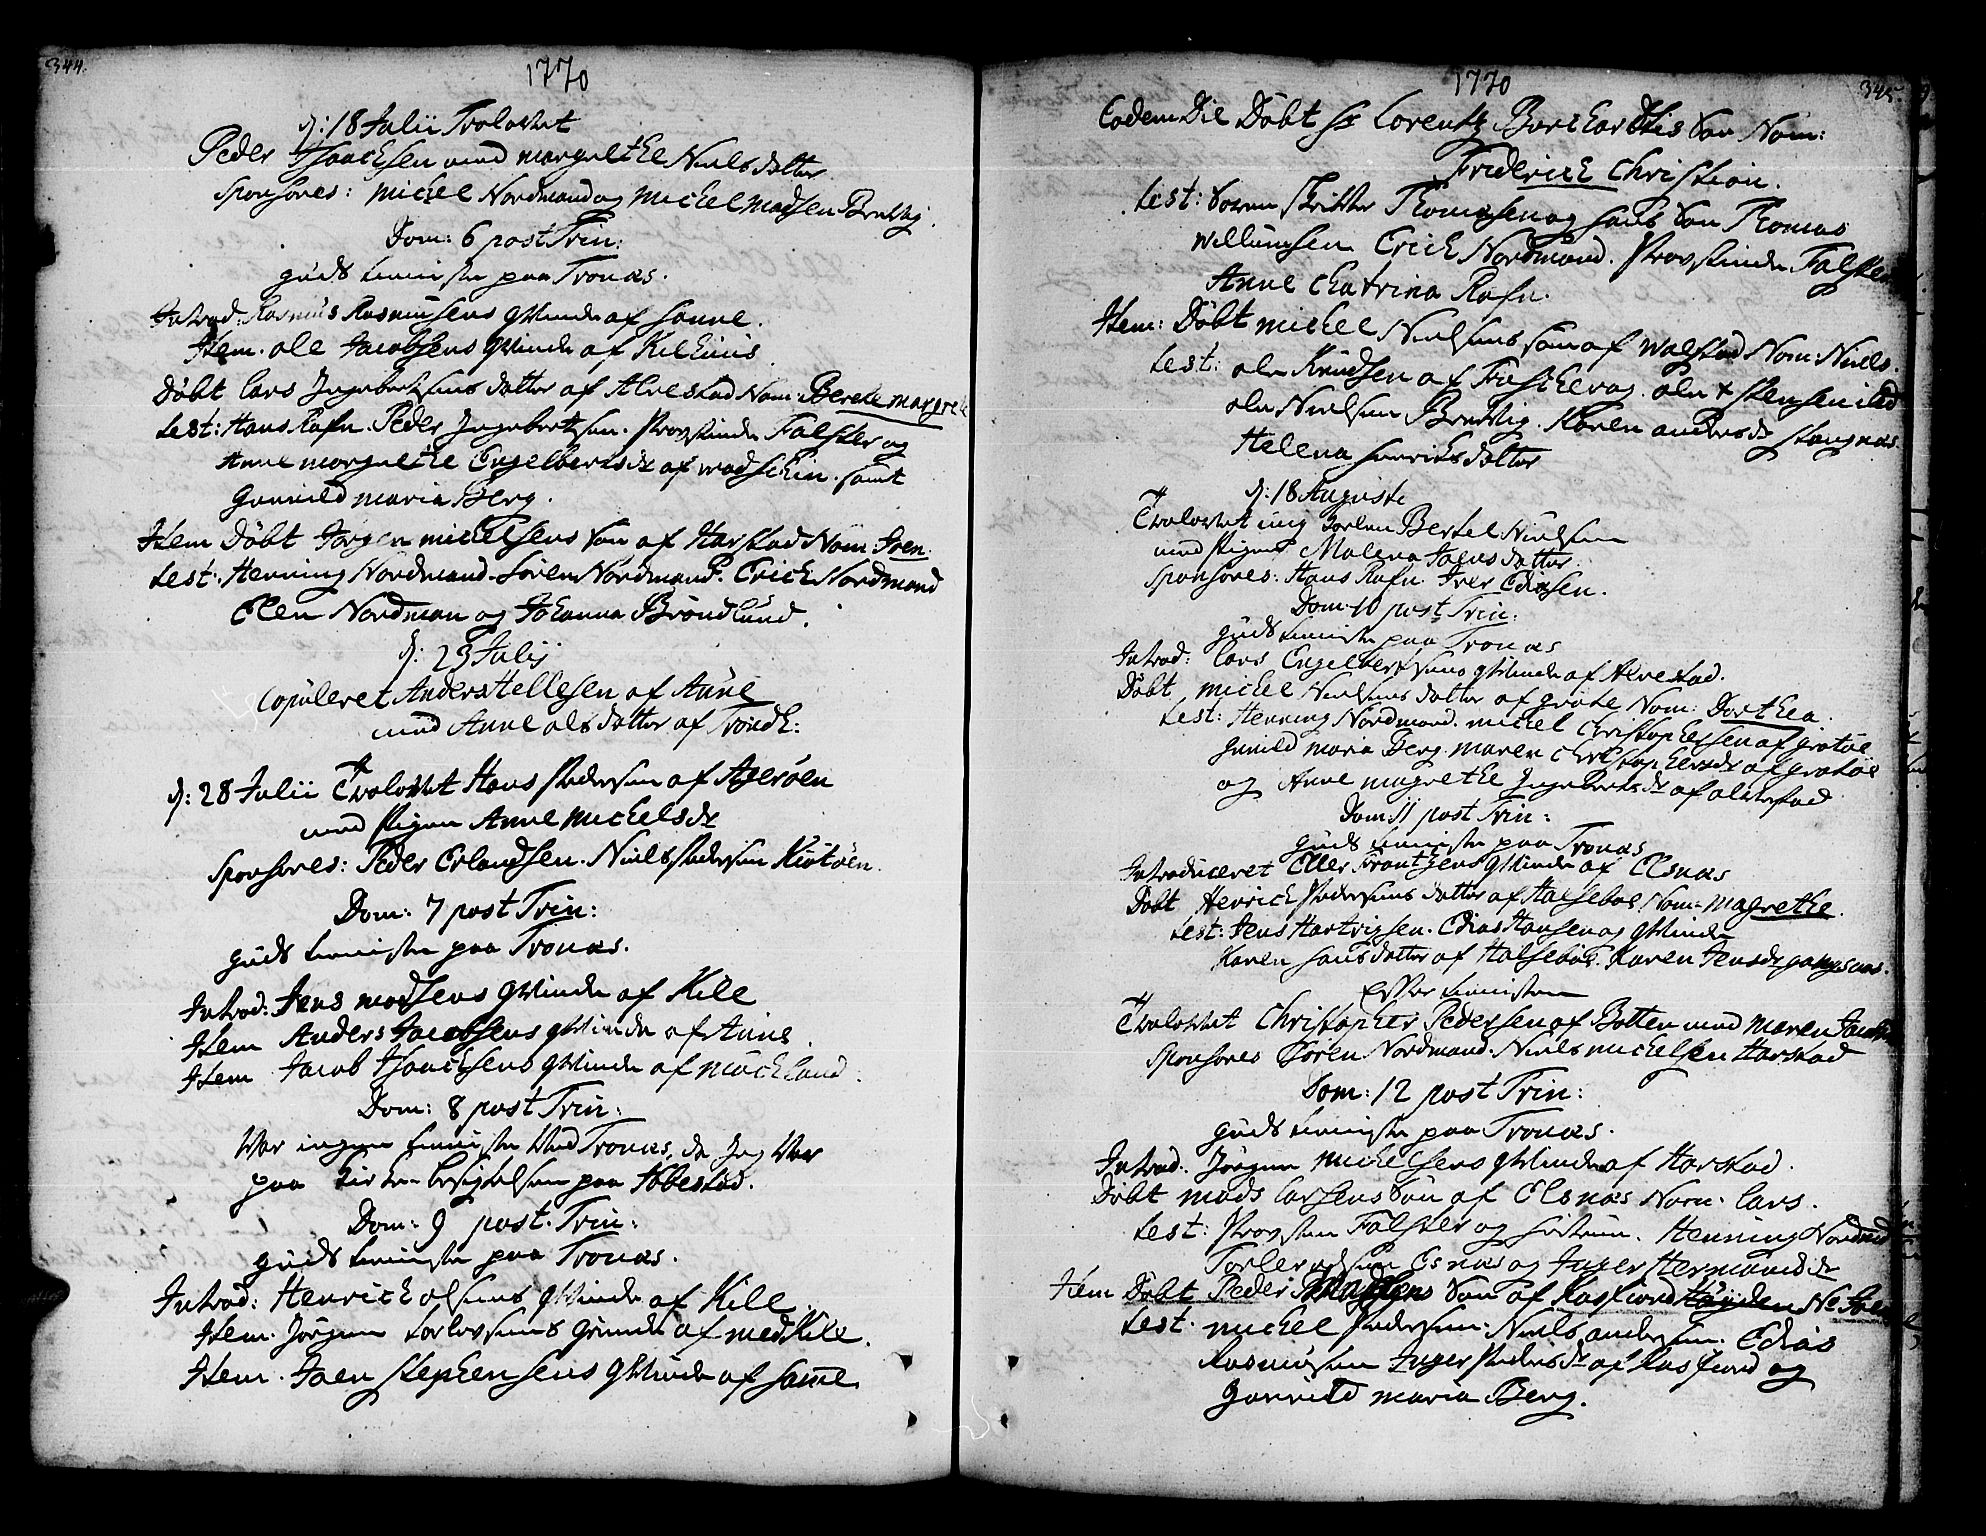 344.
1770
d: 18 Julii Trolovet
Peder Isaachsen med margrethe Nielsdatter
Sponsores: michel Nordmand og michel madsen Brevvig.
Dom: 6 post Trin:
guds tieniste paa Tronæs.
Introd: Rasmus Rasmusens qvinde af
Item. ole Jacobsens qvinde af Kilhuus
Döbt lars Ingebertsens datter af Alvestad Nom: Berethe margrete
test: Hans Rafn. Peder Ingebertsen. Provstinde Falster og
Anne margrethe Engelbertsdr af samt
Gunnild maria Berg.
Item Döbt Jörgen michelsens Sön af Harstad Nom Joen.
test: Henning Nordmand. Sören Nordmand. Erich Nordmand
Elen Nordman og Johanna Bröndlund.
d: 23 Julij
Copuleret Anders Hellesen af Aüne
med Anne olsdatter af Trondh:
d: 28 Julii Trolovet Hans Pedersen af Ageröen
med Pigen Anne michelsdr
Sponsores: Peder Erlandsen. Niels Pedersen Kiötöen.
Dom: 7 post Trin:
guds tieniste paa Tronæs.
Introd: Jens madsens qvinde af Kile
Item Anders Jacobsens qvinde af Aüne.
Item Jacob Isaachsens qvinde af möchland.
Dom: 8 post Trin:
War ingen tieniste ved Tronæs, da jeg var
paa Kirke besigtelsen paa Ibbestad.
Dom: 9 post. Trin:
guds tieniste paa Tronæs.
Introd: Henrich olsens qvinde af Kile
Item. Jörgen qvinde af medkile.
Item. Joen Stephensens qvinde af
1770
345.
Eodem Die Döbt Hr Lorentz Borchardthis Sön Nom:
Friderich Christian.
test: Soren Skriver Thomesen og hans Sön Thomas
Willumsen Erich Nordmand. Provstinde Falster
Anne Chatrina Rafn.
Item: Döbt michel Nielsens sön af walstad Nom: Niels.
test: ole Knudsen af ole
ole Nielsen Brevvig. Karen andersdr Stangnæs.
Helena Henrichsdatter
d: 18 Augusti
Trolovet ung Karlen Bertel Nielsen
med Pigen Malena Jacobsdatter.
Sponsores: Hans Rafn. Iver Ediasen.
Dom: 10 post Trin:
guds tieniste paa Tronæs
Introd: lars Engelbertsens qvinde af Alvestad.
Döbt michel Nielsens datter af gröte Nom: Dorthea.
test: Henning Nordmand. michel Christophersen af grötöe
gunild maria Berg. maren Christophersdr af grötöe
og Anne magrethe Ingebertsdr af
Dom: 11 post Trin:
guds tieniste paa Tronæs
Introduceret Eller Frantzens qvinde af Elsnæs
Döbt Henrich Pedersens datter af Halseböe Nom: magrethe.
test: Jens Hartvigsen. Edias Hansen og qvinde
Karen Hansdatter af Halseböe. Karen Jensdr gangsaas.
Efter tienisten
Trolovet Christopher Pedersen af Botten med maren
Sponsores Sören Nordmand. Niels michelsen Harstad
Dom: 12 post Trin:
guds tieniste paa Tronæs.
Introd: Jörgen michelsens qvinde af Harstad.
Döbt mads larsens Sön af Elsnæs Nom: lars.
test: Provsten Falster og Henning Nordmd
Elsnæs og Inger Hermansdr
Item Döbt Peder Sön af Kasfiord No Joen
test: michel Pedersen. Niels andersen. Edias
Rasmüsen Inger Pedersdr af Kasfiord og
Gunnild maria Berg.